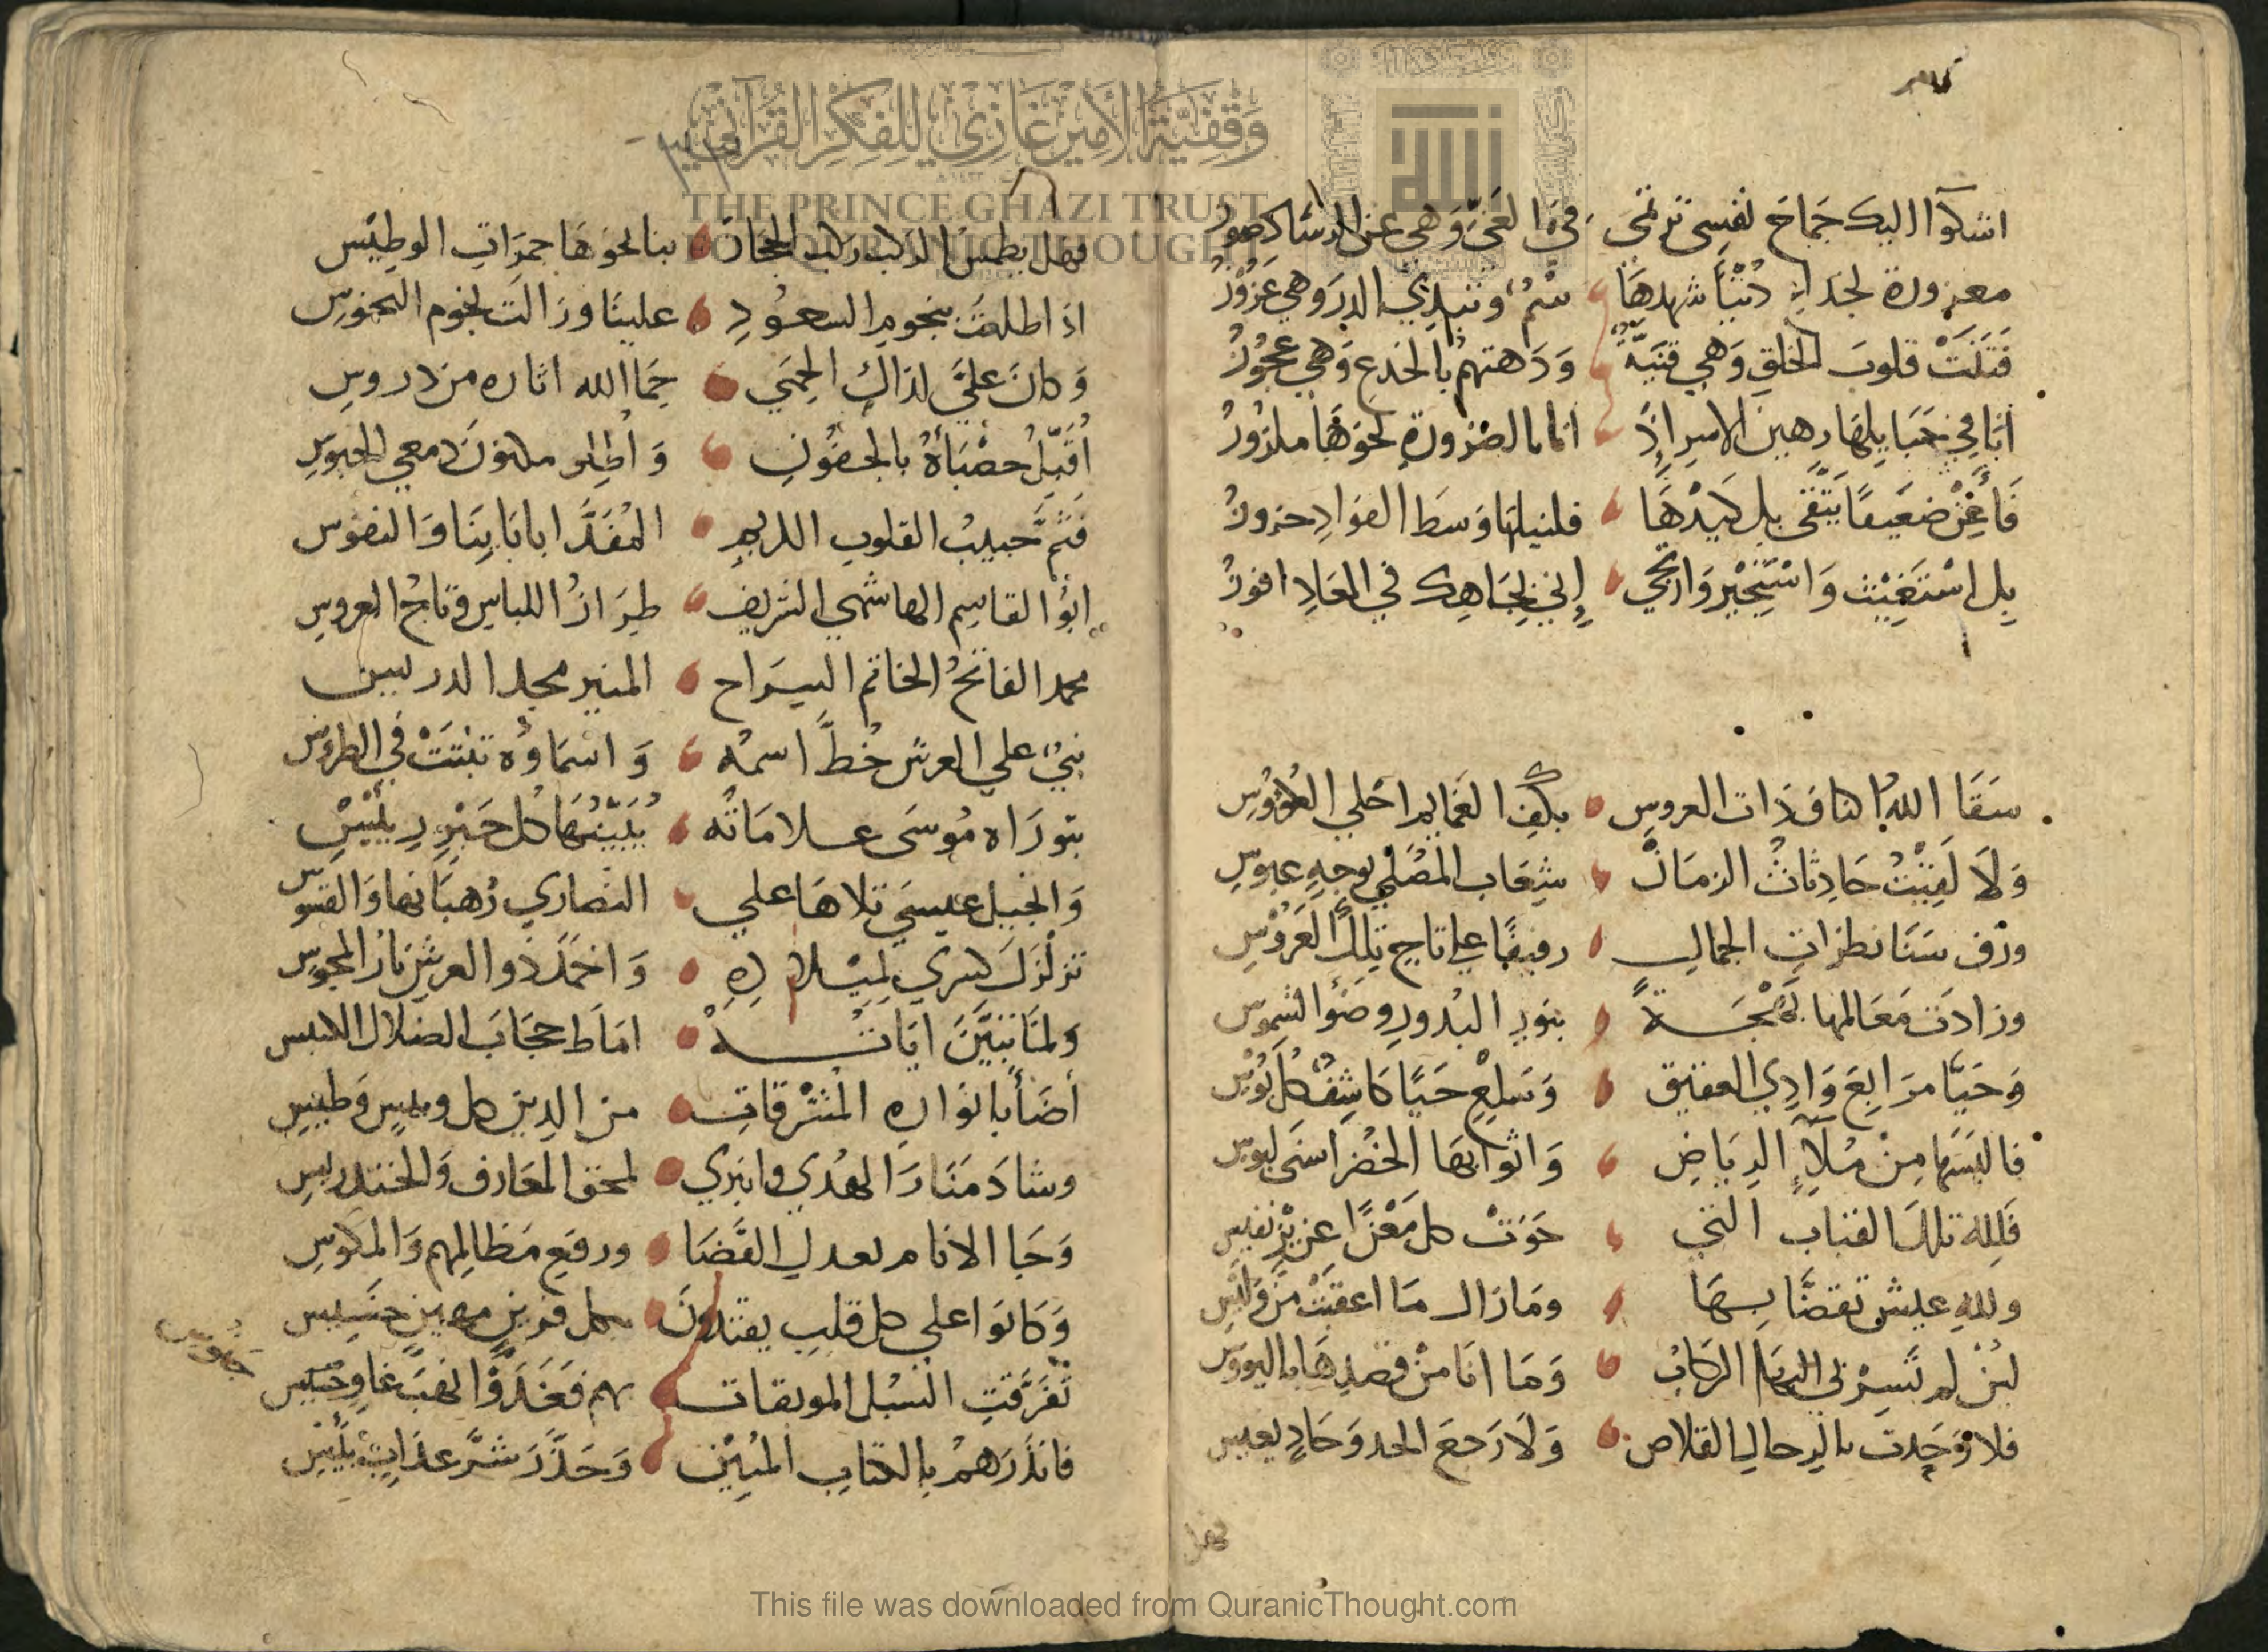 اشكوا اليك جماح نفسى ترتمى في ذا الغي وهي عن الرشاد صور
معزورة لخداع دنيا شهدها سم وتبدي الدر وهي عزوز
فتنت قلوب الخلق وهي فتية ودهتهم بالخدع وهي عجوز
انا في حبايلها رهين الاسر اذ انا بالضرورة نحوها ملزوز
فأعن ضعيفا يتقى بك كيدها فلنيلها وسط الفواد حزوز
بك استغيث واستجير وارتجي إني بجاهك في المعاد افوز
سقا الله اكناف ذات العروس بكف الغمايم احلي الكؤوس
ولا لقيت حادثات الزمان شعاب المصلي بوجه عبوس
ورق سنا نظرات الجمال رفيقا علي تاج تلك العروس
وزادت معالمها بهجة بنور البدور وضوا الشموس
وحيا مرابع وادي العقيق وسلع حيا كاشف كل بوس
فالبسها من ملآ الرياض واثوابها الخضر اسنى لبوس
فلله تلك القباب التي حوت كل مغزا عزيز نفيس
ولله عيش تقضا بها ومازال ما اعقبت من
لئن لم تسر بي اليها الركاب وما انا من قصدها باليووس
فلا وخدت بالرحال القلاص ولا رجع الحد وحاد بعيس
فهل
فهل يطمس الركب ركب الحجاز بنا نحوها جمرات الوطيس
اذا طلعت نجوم السعود علينا وزالت نجوم النحوس
وكان علي لذاك الحمي حما الله اثاره من دروس
أقبل حصباؤه بالجفون واطلو مكنون دمعي الحبوس
فثم حبيب القلوب الكريم المفدا باباينا والنفوس
ابؤا القاسم الهاشمي الشريف طراز اللباس وتاج العروس
محمد الفاتح الخاتم السراح المنير مجد الدريس
نبي علي العرش خط اسمه واسماؤه تبتت في الطروس
بتوراه موسى علاماته يبينها كل حبر رييس
وانجيل عيسى تلاها علي النصاري رهبانها والقسوس
تزلزل كسري لميلاده واخمد ذو العرش نار المجوس
ولما تبين اياته اماط حجاب الضلال اللبيس
أضأ بانواره المشرقات من الدين كل وطيس
وشاد منار الهدي وانبري لمحق المعارف والخندريس
وحبا الانام بعدل القضا ورفع مظالمهم والمكوس
وكانوا علي كل قلب يقتدون بكل قرين مهين خسيس
تفرقت السبل الموبقات بهم فغدوا نهب غاو
فانذرهم بالكتاب المبين وحذر شر عذاب بئيس
وقفية الأمير غازي للفكر القرآني
THE PRINCE GHAZI TRUST
FOR QURANIC THOUGHT
This file was downloaded from QuranicThought.com